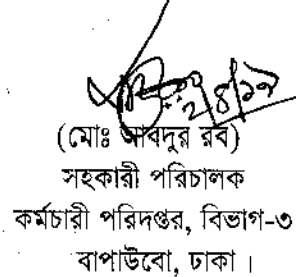 ২/৪/১৯
(মোঃ আবদুর রব)
সহকারী পরিচালক
কর্মচারী পরিদপ্তর, বিভাগ-৩
বাপাউবো, ঢাকা।